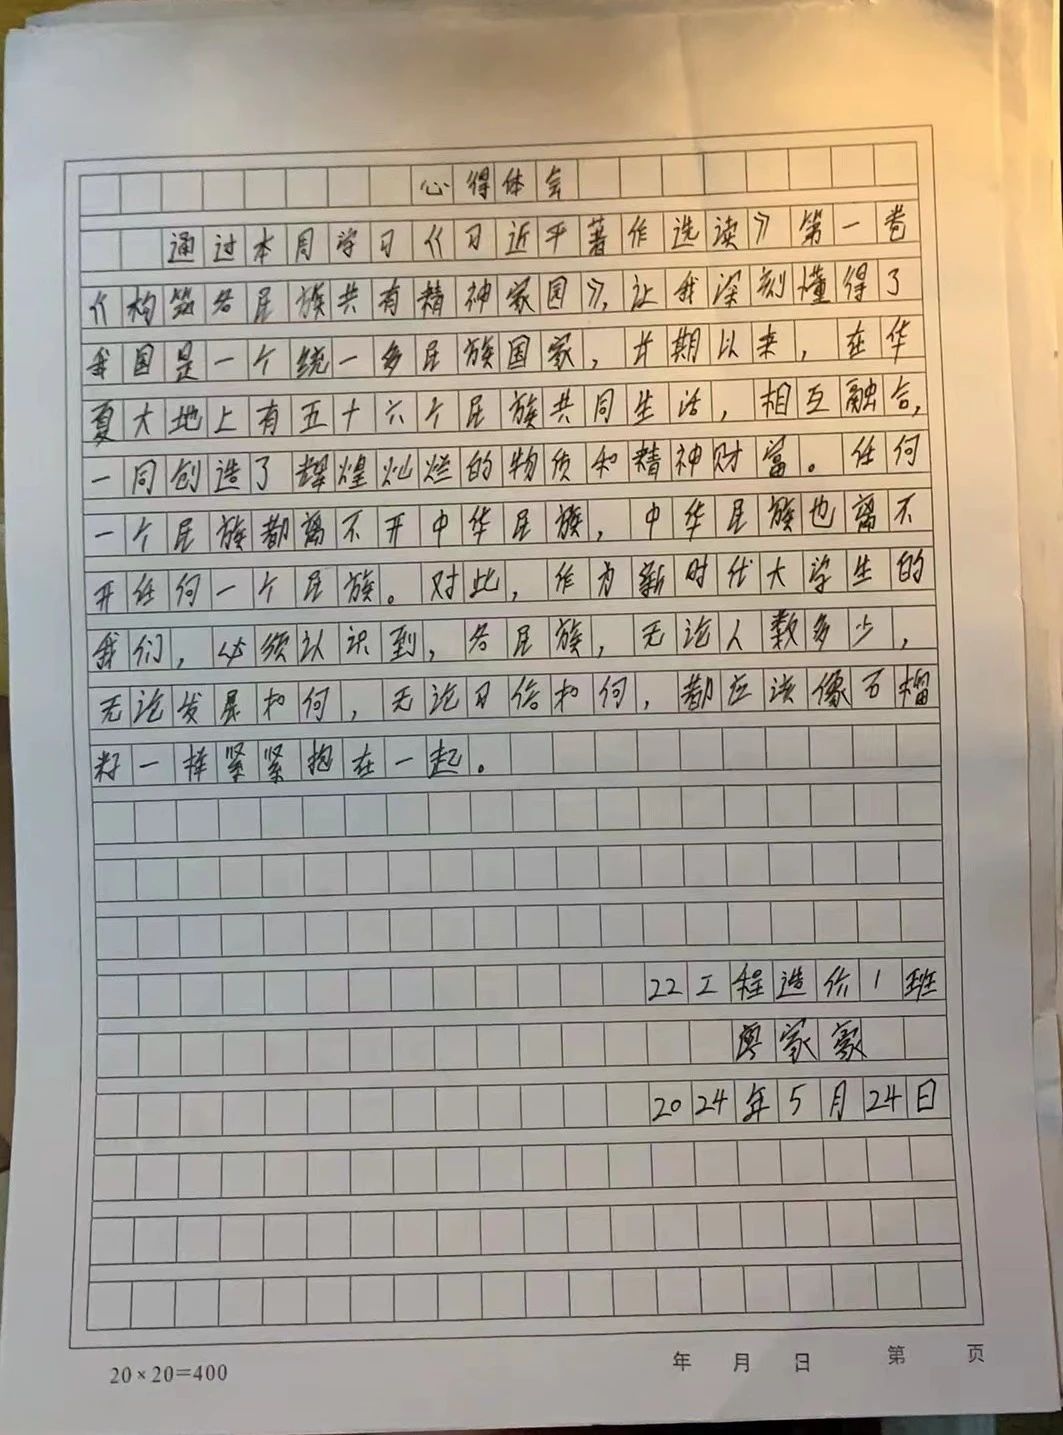 心得体会
通过本周学习《习近平著作选读》第一卷
《构筑各民族共有精神家园》，让我深刻懂得了
我国是一个统一多民族国家，长期以来，在华
夏大地上有五十六个民族共同生活，相互融合，
一同创造了辉煌灿烂的物质和精神财富。任何
一个民族都离不开中华民族，中华民族也离不
开任何一个民族。对此，作为新时代大学生的
我们，必须认识到，各民族，无论人数多少，
无论发展如何，无论习俗如何，都应该像石榴
籽一样紧紧抱在一起。
22工程造价1班
廖家豪
2024年5月24日
20×20=400
年 月 日 第 页